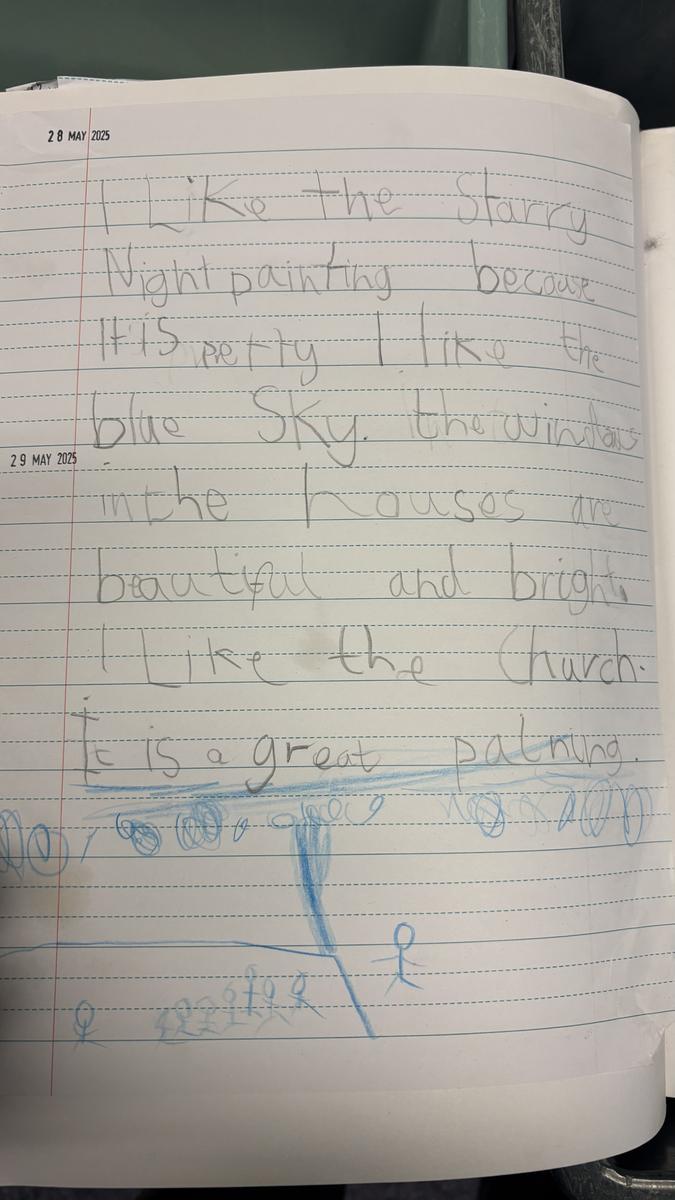 28 MAY 2025
I Like the Starry
Night painting because
It is pertty I like the
blue Sky. the windows
29 MAY 2025
in the houses are
beautiful and bright.
I Like the Church.
It is a great patning.